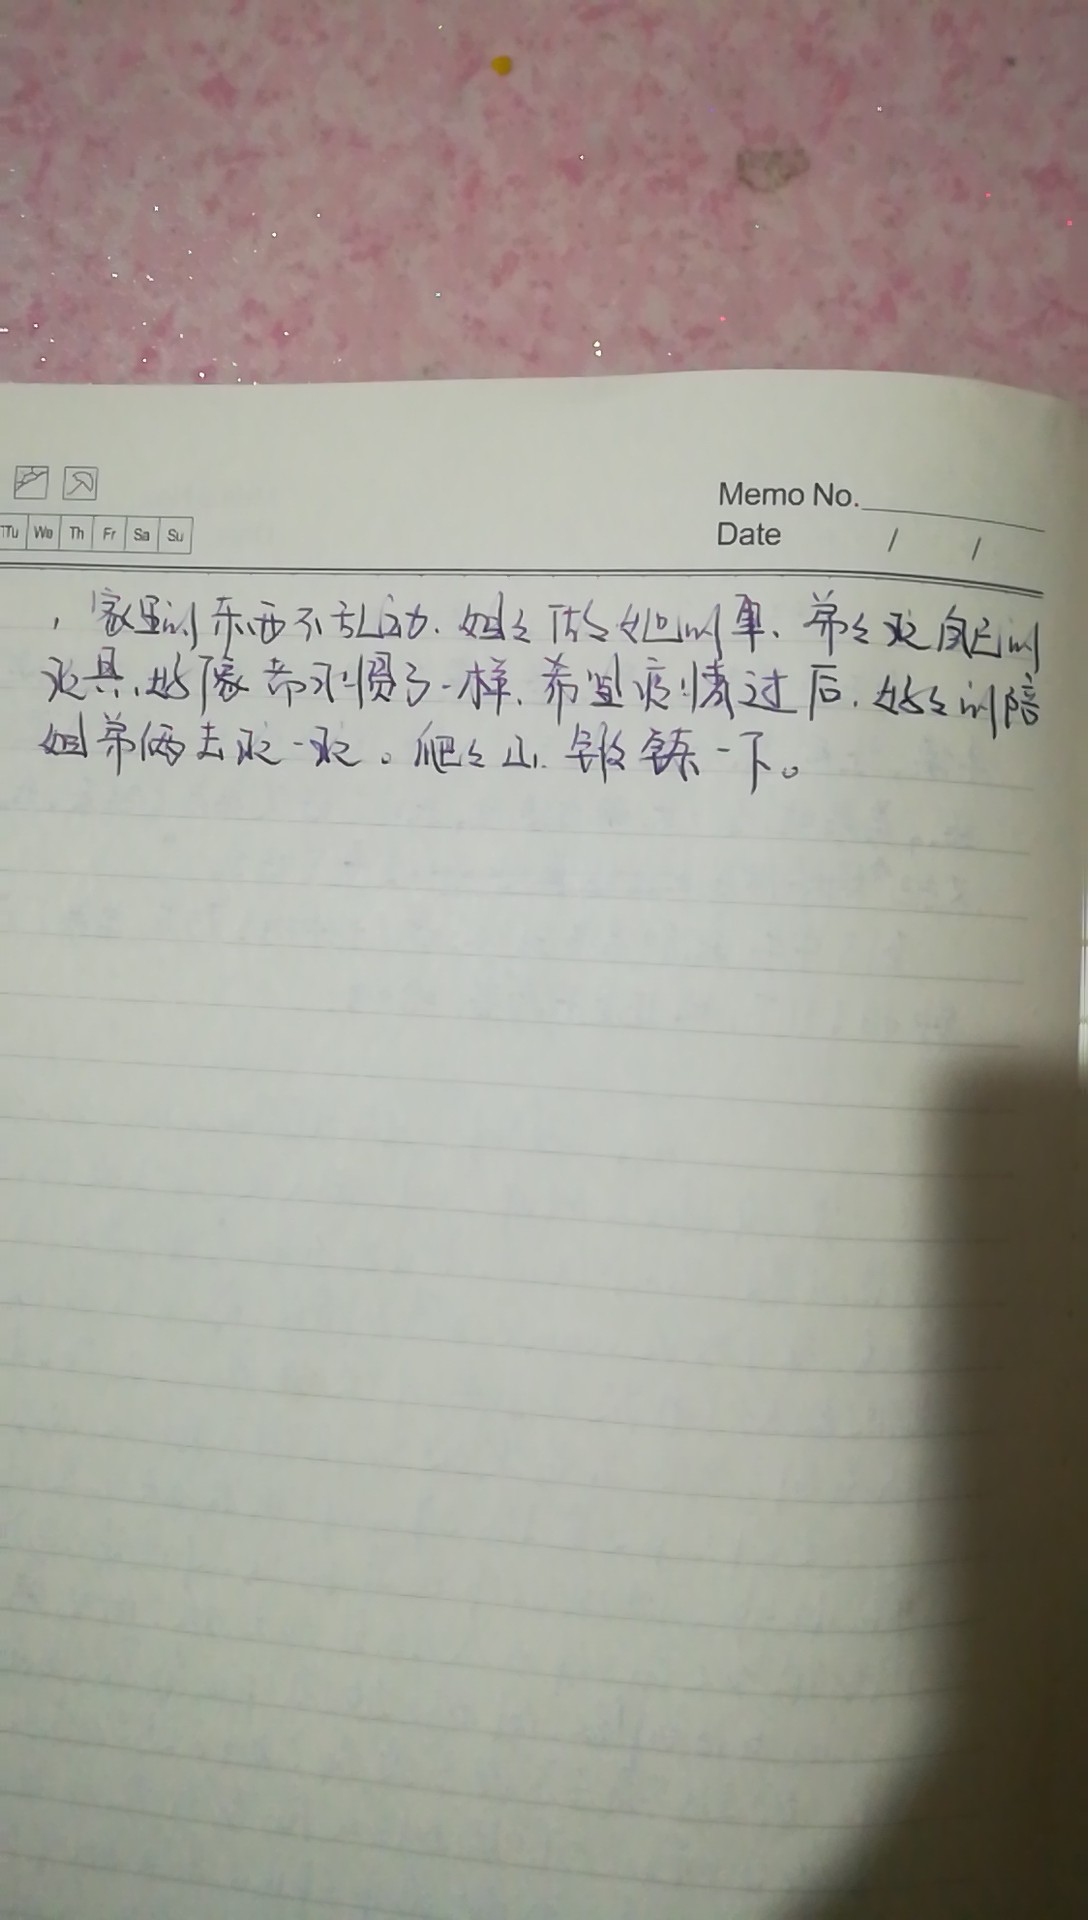 Memo No.
Tu We Th Fr Sa Su
Date / /
，家里的东西不乱动.姐々做々她的事、弟々玩自己的
玩具,好像都习惯了一样,希望疫情过后,好々的陪
姐弟俩去玩一玩。爬々山.锻炼一下。